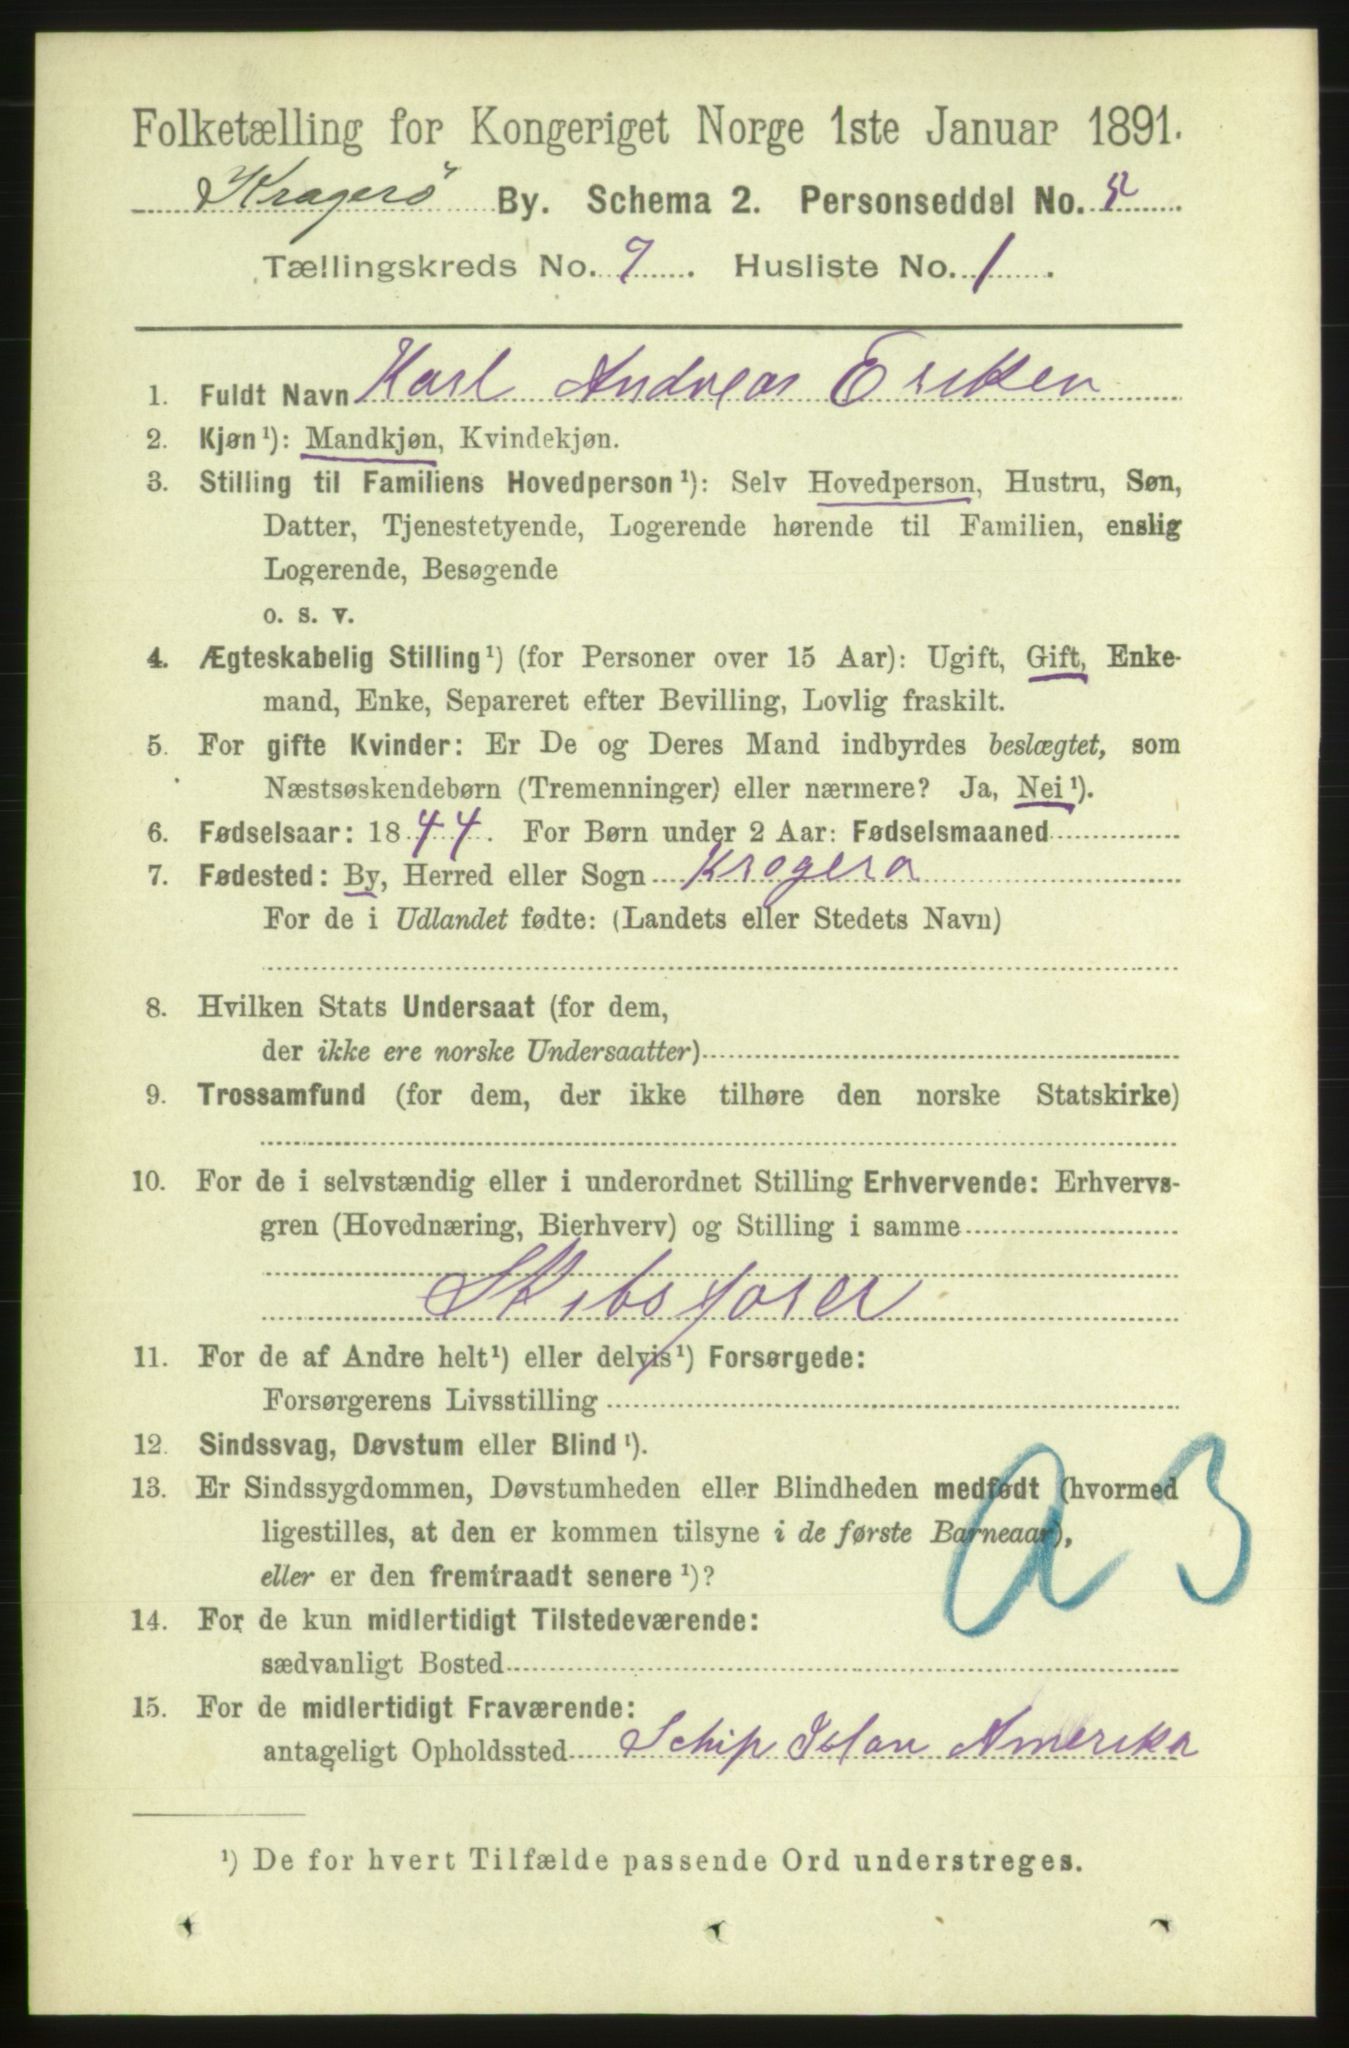 Folketælling for Kongeriget Norge 1ste Januar 1891.
Kragerö By. Schema 2. Personseddel No. 5
Tællingskreds No. 7. Husliste No. 1.
1. Fuldt Navn Karl Andreas Eriksen
2. Kjøn¹): Mandkjøn, Kvindekjøn.
3. Stilling til Familiens Hovedperson¹): Selv Hovedperson, Hustru, Søn,
Datter, Tjenestetyende, Logerende hørende til Familien, enslig
Logerende, Besøgende
o. s. v.
4. Ægteskabelig Stilling¹) (for Personer over 15 Aar): Ugift, Gift, Enke-
mand, Enke, Separeret efter Bevilling, Lovlig fraskilt.
5. For gifte Kvinder: Er De og Deres Mand indbyrdes beslægtet, som
Næstsøskendebørn (Tremenninger) eller nærmere? Ja, Nei¹).
6. Fødselsaar: 1844. For Børn under 2 Aar: Fødselsmaaned
7. Fødested: By, Herred eller Sogn Kragerø
For de i Udlandet fødte: (Landets eller Stedets Navn)
8. Hvilken Stats Undersaat (for dem,
der ikke ere norske Undersaatter)
9. Trossamfund (for dem, der ikke tilhøre den norske Statskirke)
10. For de i selvstændig eller i underordnet Stilling Erhvervende: Erhvervs-
gren (Hovednæring, Bierhverv) og Stilling i samme
Skibsforer
11. For de af Andre helt¹) eller delvis¹) Forsørgede:
Forsørgerens Livsstilling
12. Sindssvag, Døvstum eller Blind¹).
13. Er Sindssygdommen, Døvstumheden eller Blindheden medfødt (hvormed
ligestilles, at den er kommen tilsyne i de første Barneaar),
eller er den fremtraadt senere¹)?
a 3
14. For de kun midlertidigt Tilstedeværende:
sædvanligt Bosted
15. For de midlertidigt Fraværende:
antageligt Opholdssted Schip Islan Amerika
¹) De for hvert Tilfælde passende Ord understreges.